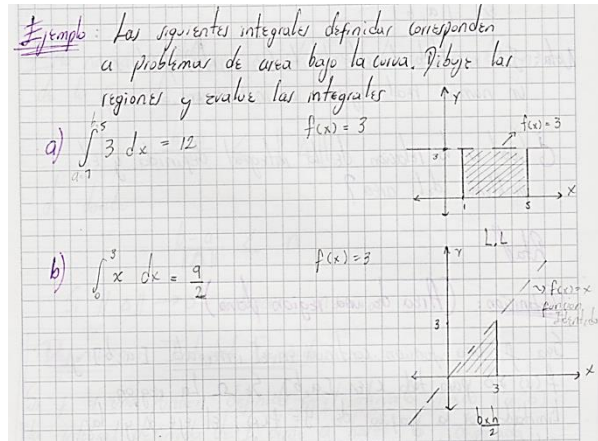 Ejemplo: Las siguientes integrales definidas corresponden
a problemas de area bajo la curva. Dibuje las
regiones y evalue las integrales
a) ∫ 3 dx = 12
b=5
a=1
f(x) = 3
Y
f(x) = 3
3
1
5
X
b) ∫₀³ x dx = 9/2
f(x) = 3
L.L
Y
f(x) = x
función
Identidad
3
3
X
bxh/2